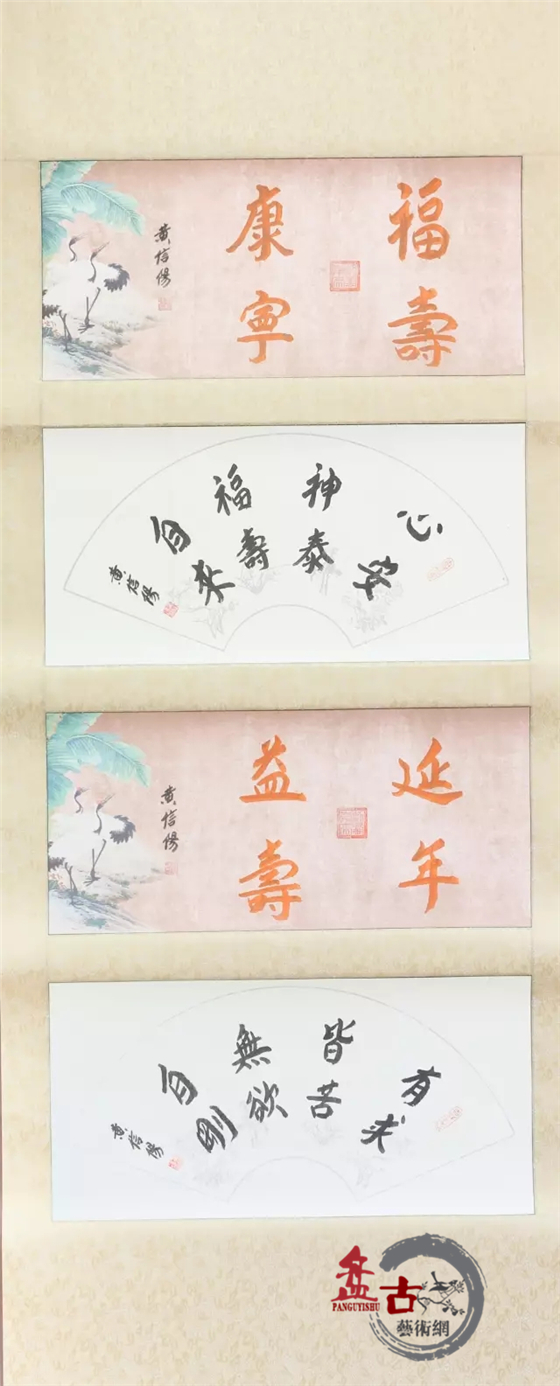 福壽
康寧
黄信陽
心安
神泰
福壽
自来
黄信陽
延年
益壽
黄信陽
有求
皆苦
無欲
自剛
黄信陽
盘古
PANGUYISHU
藝術網